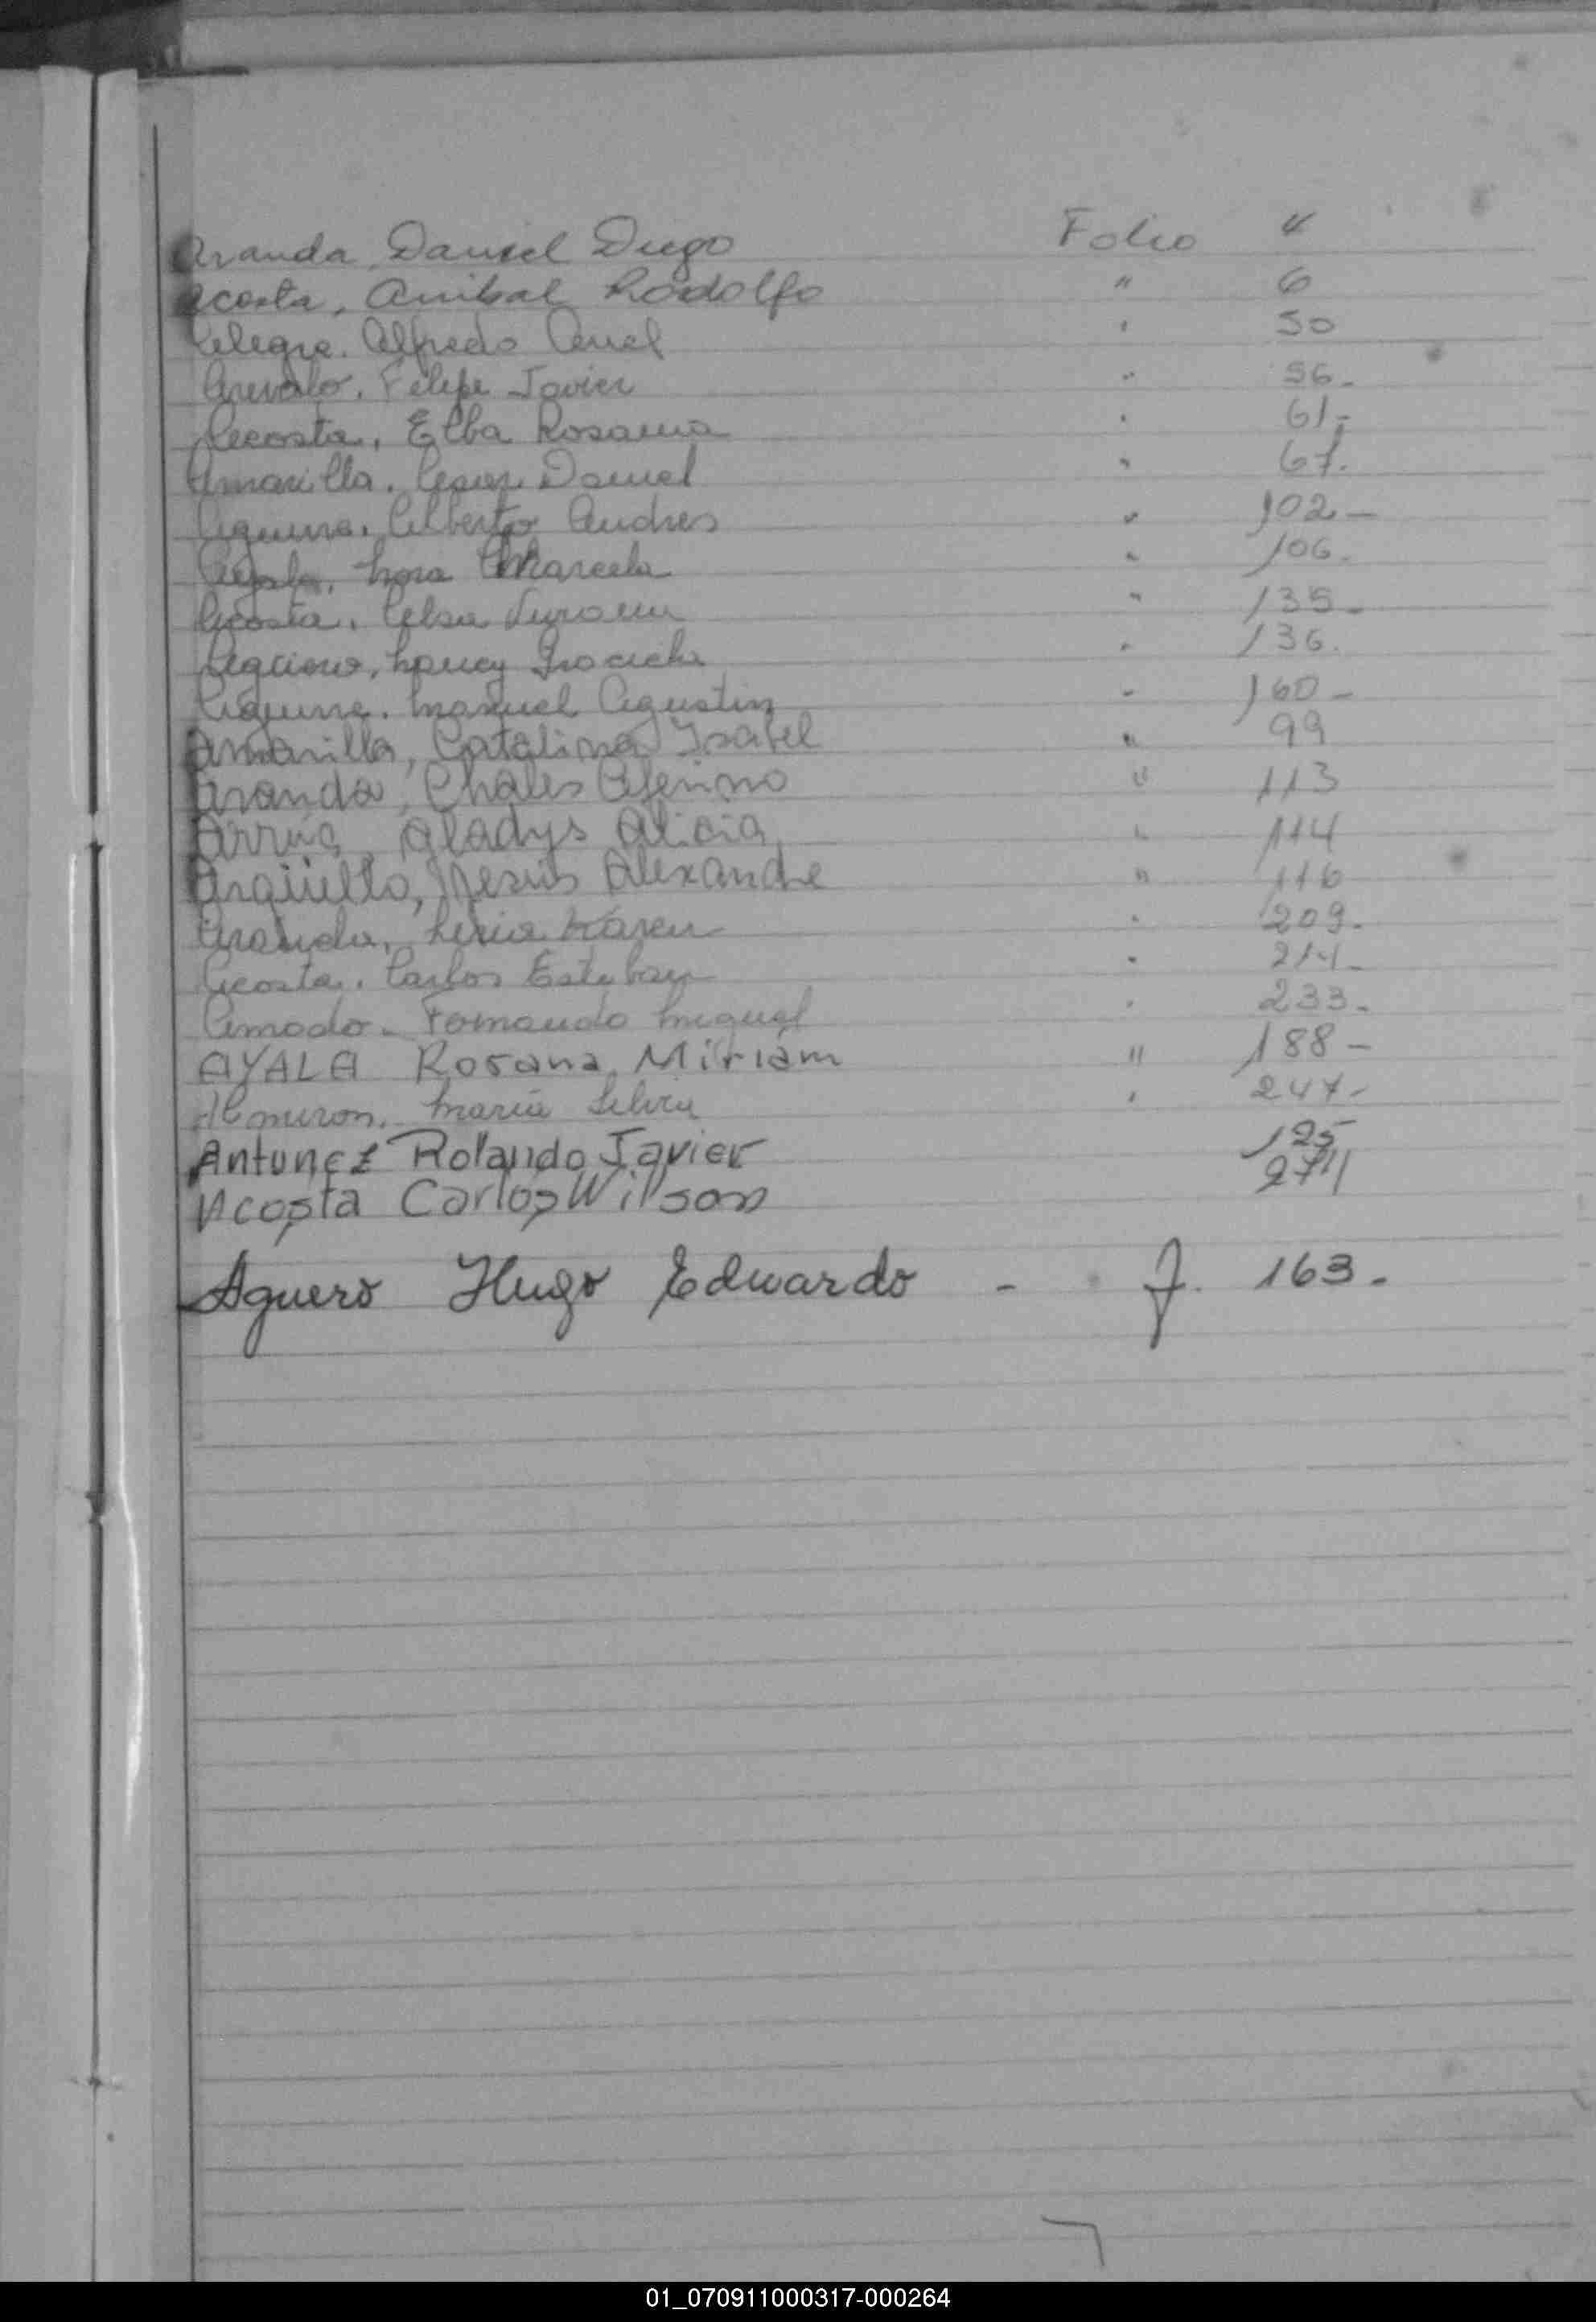 Aranda Daniel Diego Folio 4
Acosta, Anibal Rodolfo " 6
Alegre. Alfredo Ariel " 50
Arevalo. Felipe Javier " 56-
Acosta, Elba Rosana " 61-
Amarilla. Cesar Daniel " 67.
Aguirre. Alberto Andres " 102-
Ayala. Nora Marcela " 106-
Acosta. Celsa 135-
Nancy Graciela 136.
Aguirre. Manuel Agustin - 160-
Amarilla, Catalina Isabel " 99
Aranda, Chales Ceferino " 113
Arrua, Gladys Alicia " 114
Argüello, Nesus Alexandre " 116
Aranda, Karen 209.
Acosta. Carlos Esteban 214-
Amado. Fernando Miguel 233-
AYALA Rosana Miriam " 188-
Almiron. Maria Silvia 247-
Antunez Rolando Javier 125
Acosta Carlos Wilson 271
Aguero Hugo Eduardo - f. 163.
01_070911000317-000264